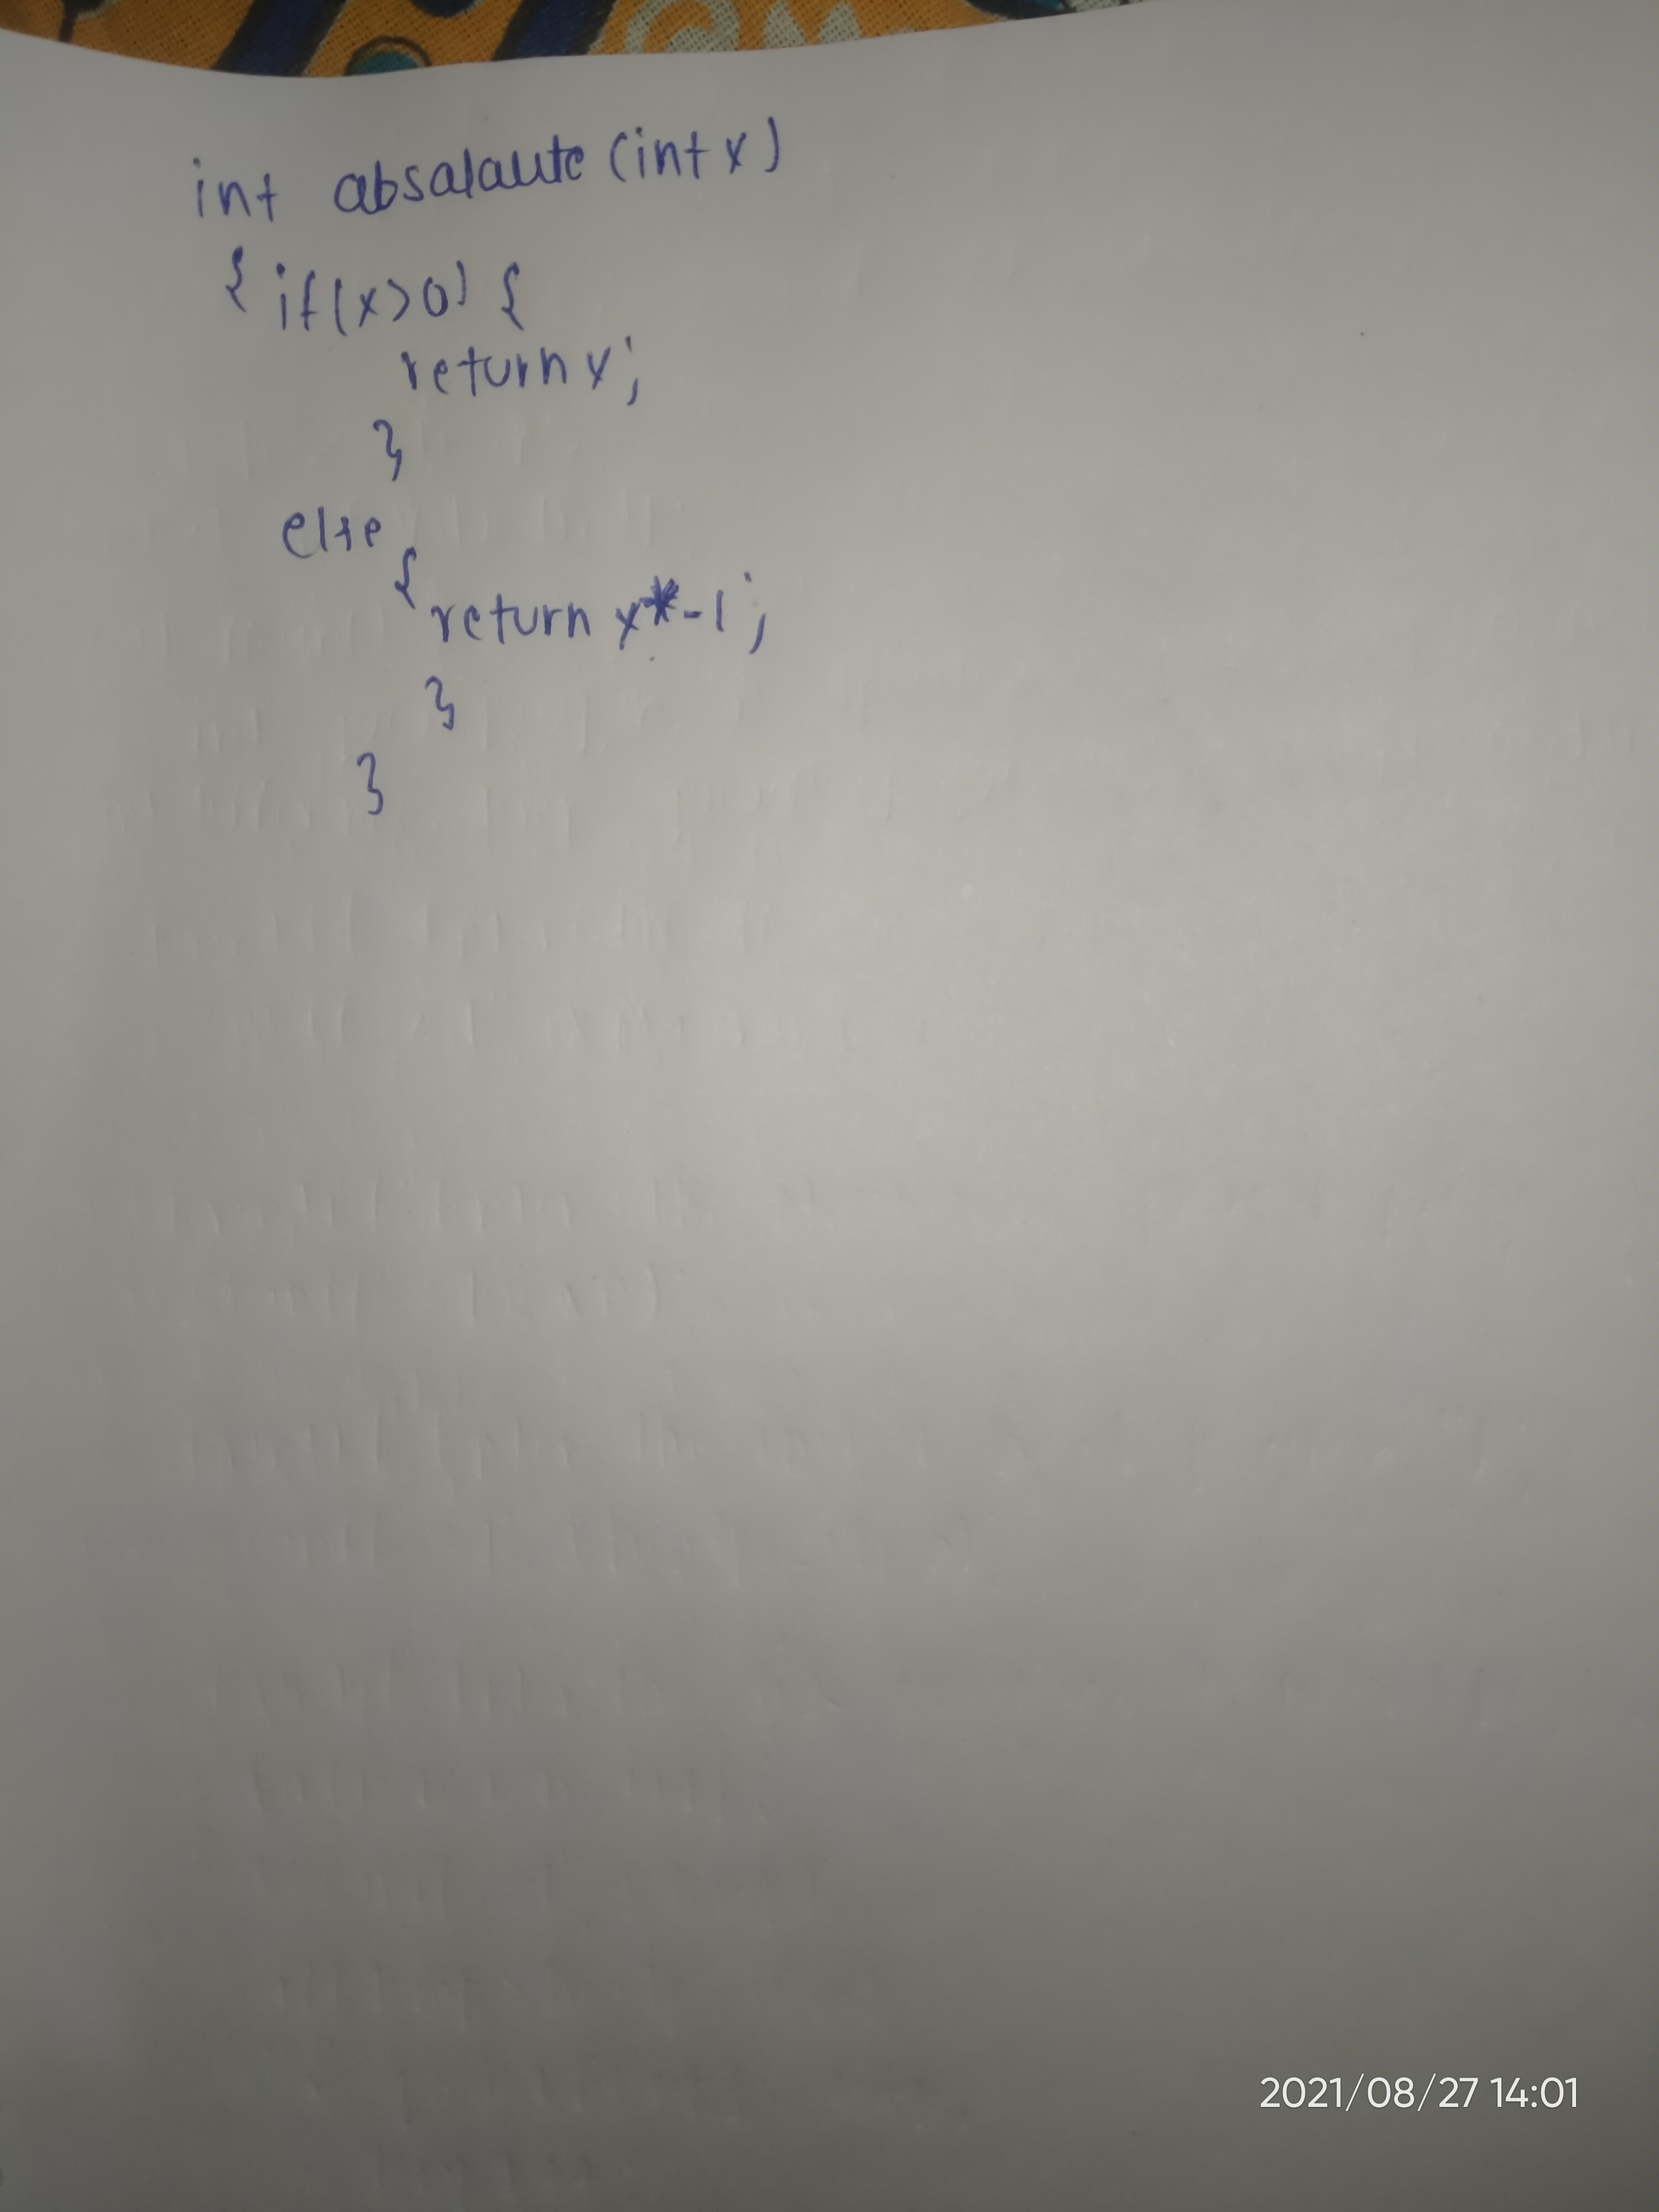 int absalaute (int x)
{ if (x>0) {
return x;
}
else
{
return x*-1;
}
}
2021/08/27 14:01